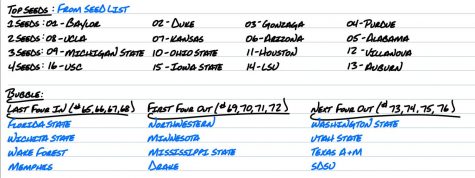 TOP SEEDS: FROM SEED LIST
1 SEEDS: 01 - BAYLOR 02 - DUKE 03 - GONZAGA 04 - PURDUE
2 SEEDS: 08 - UCLA 07 - KANSAS 06 - ARIZONA 05 - ALABAMA
3 SEEDS: 09 - MICHIGAN STATE 10 - OHIO STATE 11 - HOUSTON 12 - VILLANOVA
4 SEEDS: 16 - USC 15 - IOWA STATE 14 - LSU 13 - AUBURN
BUBBLE:
LAST FOUR IN (#65,66,67,68) FIRST FOUR OUT (#69,70,71,72) NEXT FOUR OUT (#73,74,75,76)
FLORIDA STATE NORTHWESTERN WASHINGTON STATE
WICHITA STATE MINNESOTA UTAH STATE
WAKE FOREST MISSISSIPPI STATE TEXAS A+M
MEMPHIS DRAKE SDSU